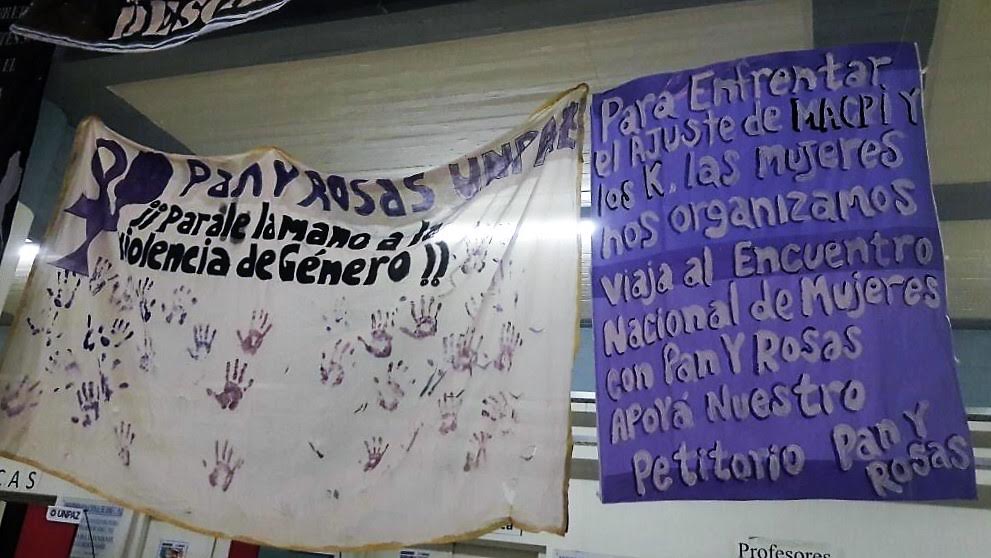 PAN Y ROSAS UNPAZ
¡¡Parále la mano a la
violencia de Género!!
Pará Enfrentar
el AJUSTE de MACPI Y
los K. las mujeres
nos organizamos
viaja al Encuentro
Nacional de Mujeres
con Pan Y Rosas
APOYÁ Nuestro
Petitorio Pan Y
Rosas
CAS
UNPAZ
Profesores